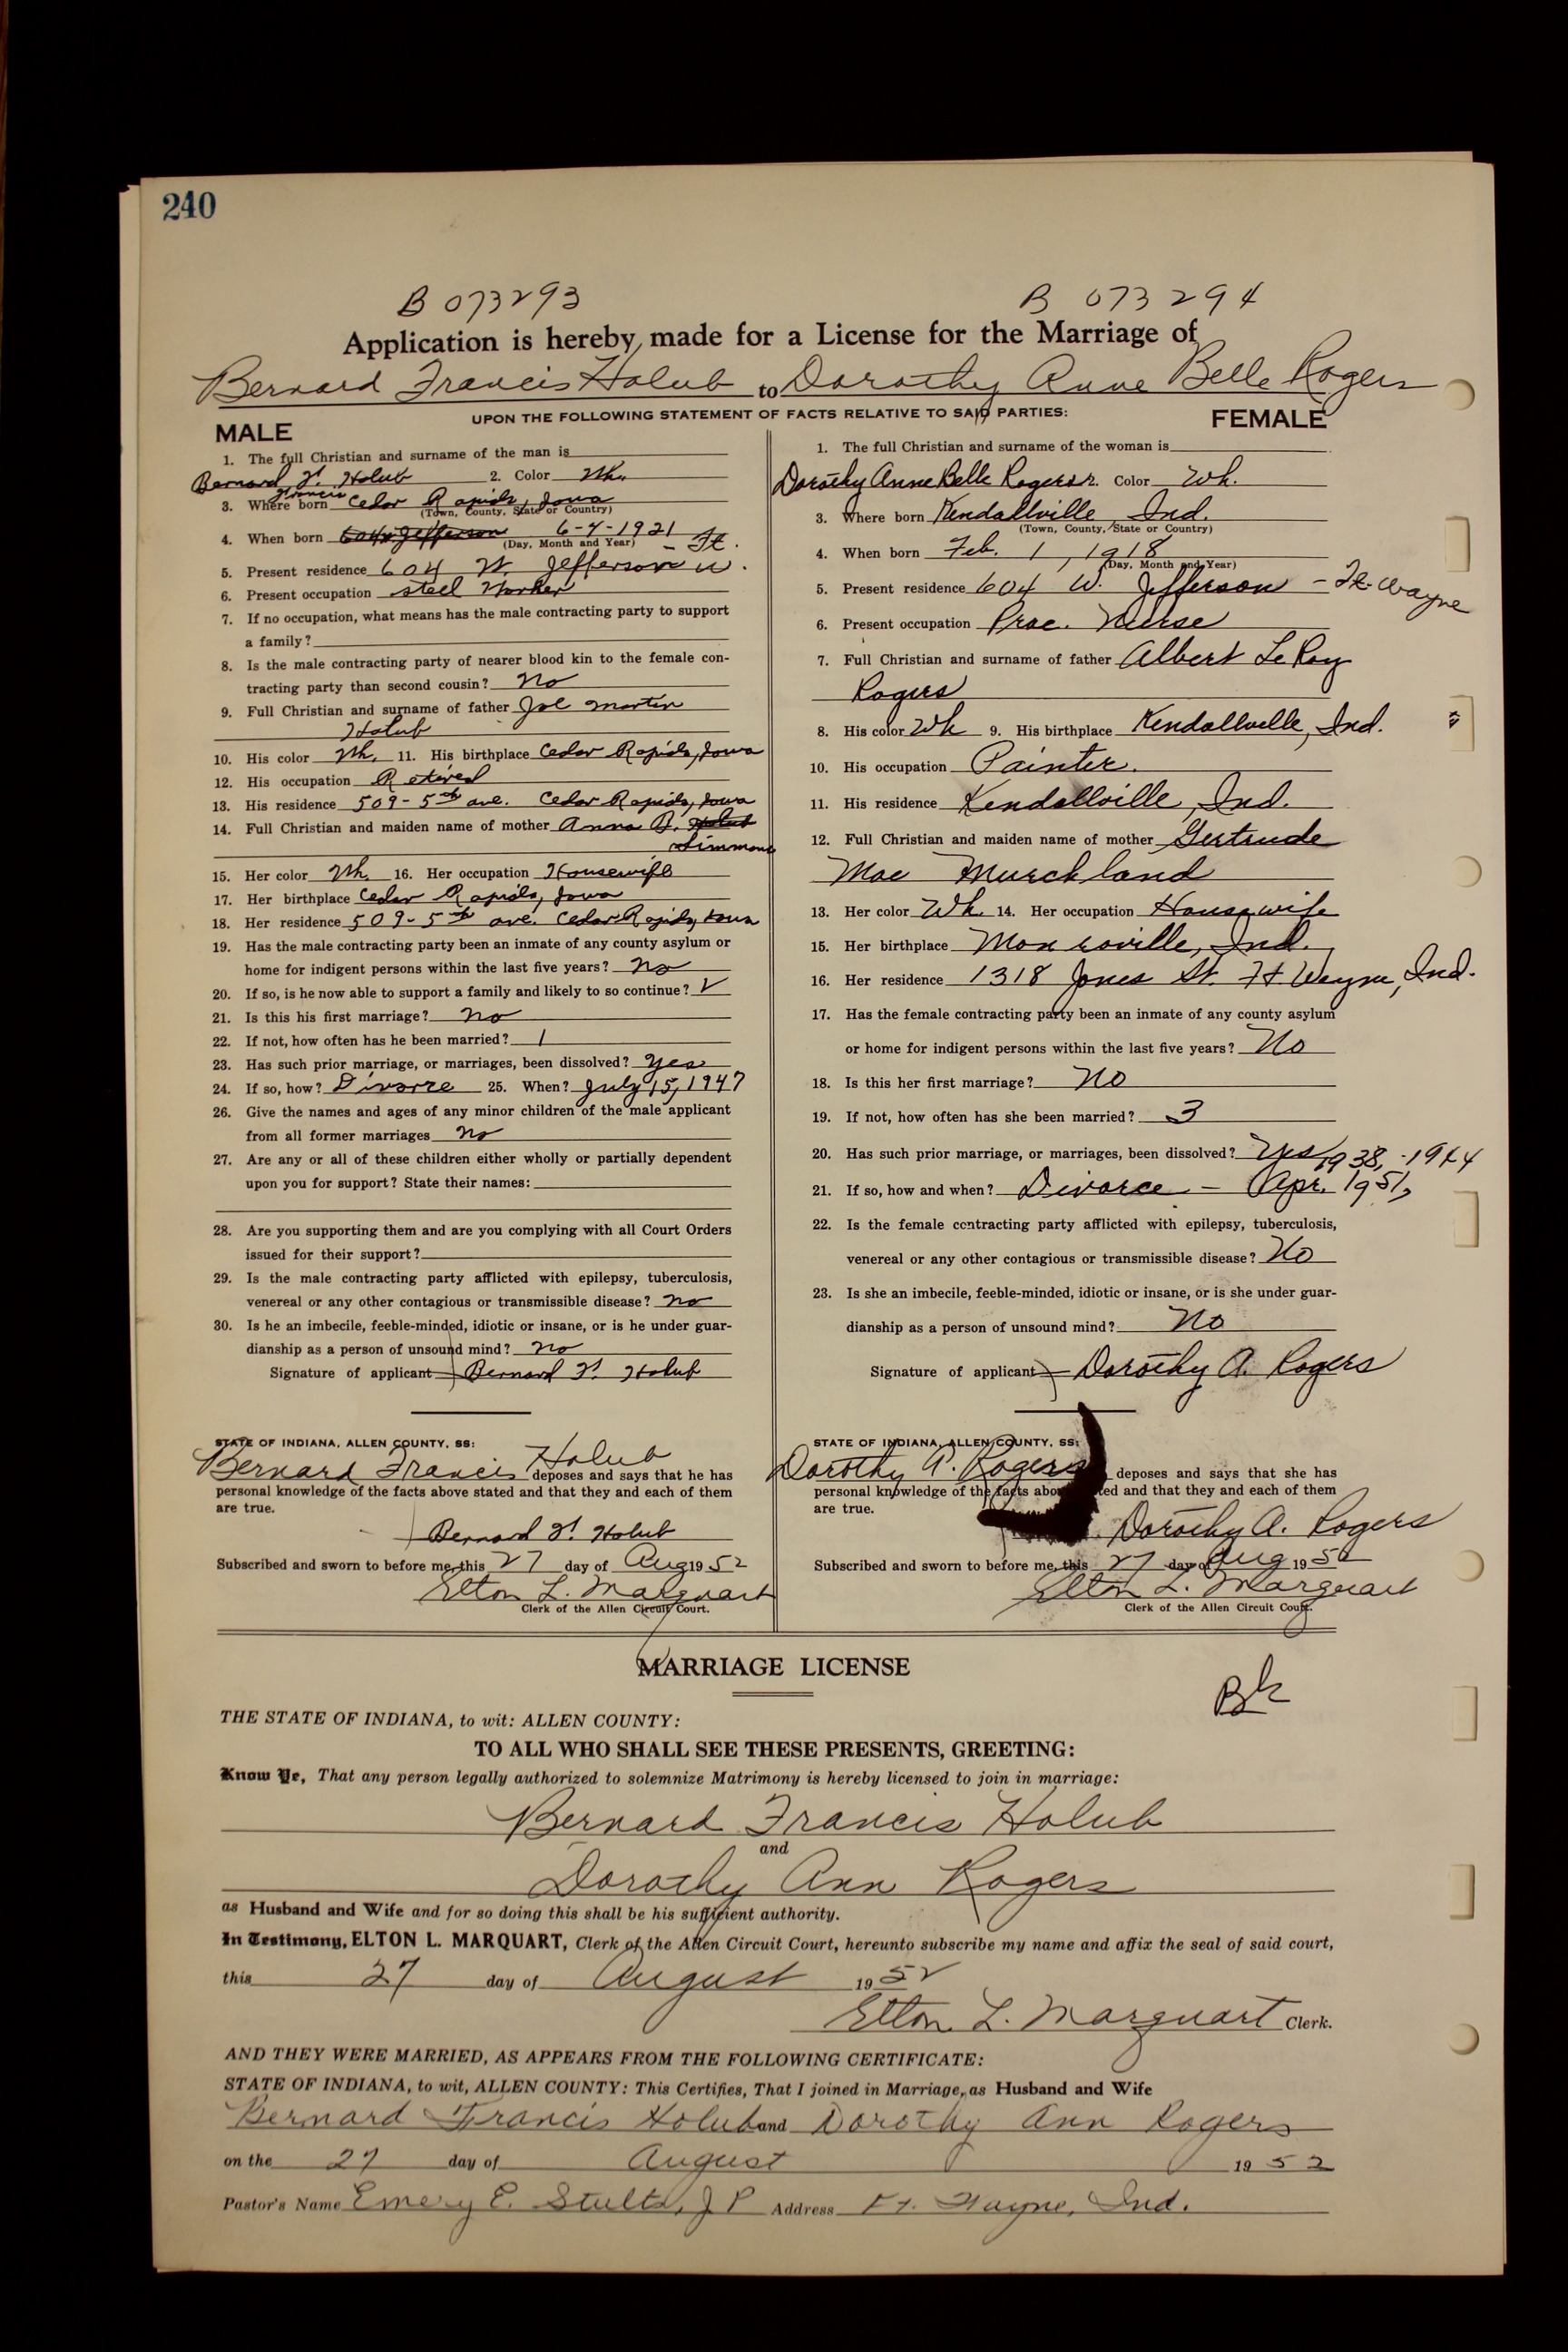 240
B 073293 B 073294
Application is hereby made for a License for the Marriage of
Bernard Francis Holub to Dorothy Anne Belle Rogers
UPON THE FOLLOWING STATEMENT OF FACTS RELATIVE TO SAID PARTIES:
MALE
1. The full Christian and surname of the man is
Bernard F. Holub 2. Color Wh.
Francis
3. Where born Cedar Rapids, Iowa
(Town, County, State or Country)
4. When born 604 W Jefferson 6-4-1921
(Day, Month and Year)
5. Present residence 604 W. Jefferson - Ft. W.
6. Present occupation Steel Worker
7. If no occupation, what means has the male contracting party to support
a family?
8. Is the male contracting party of nearer blood kin to the female con-
tracting party than second cousin? No
9. Full Christian and surname of father Joe Martin
Holub
10. His color Wh. 11. His birthplace Cedar Rapids, Iowa
12. His occupation Retired
13. His residence 509 - 5th ave. Cedar Rapids, Iowa
14. Full Christian and maiden name of mother Anna B. Holub
Simmons
15. Her color Wh. 16. Her occupation Housewife
17. Her birthplace Cedar Rapids, Iowa
18. Her residence 509 - 5th ave. Cedar Rapids, Iowa
19. Has the male contracting party been an inmate of any county asylum or
home for indigent persons within the last five years? No
20. If so, is he now able to support a family and likely to so continue? ✓
21. Is this his first marriage? No
22. If not, how often has he been married? 1
23. Has such prior marriage, or marriages, been dissolved? Yes
24. If so, how? Divorce 25. When? July 15, 1947
26. Give the names and ages of any minor children of the male applicant
from all former marriages No
27. Are any or all of these children either wholly or partially dependent
upon you for support? State their names:
28. Are you supporting them and are you complying with all Court Orders
issued for their support?
29. Is the male contracting party afflicted with epilepsy, tuberculosis,
venereal or any other contagious or transmissible disease? No
30. Is he an imbecile, feeble-minded, idiotic or insane, or is he under guar-
dianship as a person of unsound mind? No
Signature of applicant Bernard F. Holub
STATE OF INDIANA, ALLEN COUNTY, SS:
Bernard Francis Holub deposes and says that he has
personal knowledge of the facts above stated and that they and each of them
are true.
Bernard F. Holub
Subscribed and sworn to before me, this 27 day of Aug 1952
Elton L. Marquart
Clerk of the Allen Circuit Court.
FEMALE
1. The full Christian and surname of the woman is
Dorothy Anne Belle Rogers 2. Color Wh.
3. Where born Kendallville Ind.
(Town, County, State or Country)
4. When born Feb. 1, 1918
(Day, Month and Year)
5. Present residence 604 W. Jefferson - Ft. Wayne
6. Present occupation Prac. Nurse
7. Full Christian and surname of father Albert LeRoy
Rogers
8. His color Wh 9. His birthplace Kendallville, Ind.
10. His occupation Painter.
11. His residence Kendallville, Ind.
12. Full Christian and maiden name of mother Gertrude
Mae Murchland
13. Her color Wh. 14. Her occupation Housewife
15. Her birthplace Monroville, Ind.
16. Her residence 1318 Jones St. Ft Wayne, Ind.
17. Has the female contracting party been an inmate of any county asylum
or home for indigent persons within the last five years? No
18. Is this her first marriage? No
19. If not, how often has she been married? 3
20. Has such prior marriage, or marriages, been dissolved? Yes 1938, - 1944
21. If so, how and when? Divorce - Apr. 1951,
22. Is the female contracting party afflicted with epilepsy, tuberculosis,
venereal or any other contagious or transmissible disease? No
23. Is she an imbecile, feeble-minded, idiotic or insane, or is she under guar-
dianship as a person of unsound mind? No
Signature of applicant Dorothy A. Rogers
STATE OF INDIANA, ALLEN COUNTY, SS:
Dorothy A. Rogers deposes and says that she has
personal knowledge of the facts above stated and that they and each of them
are true.
Dorothy A. Rogers
Subscribed and sworn to before me, this 27 day of Aug 1952
Elton L. Marquart
Clerk of the Allen Circuit Court.
MARRIAGE LICENSE
Bk
THE STATE OF INDIANA, to wit: ALLEN COUNTY:
TO ALL WHO SHALL SEE THESE PRESENTS, GREETING:
Know Ye, That any person legally authorized to solemnize Matrimony is hereby licensed to join in marriage:
Bernard Francis Holub
and
Dorothy Ann Rogers
as Husband and Wife and for so doing this shall be his sufficient authority.
In Testimony, ELTON L. MARQUART, Clerk of the Allen Circuit Court, hereunto subscribe my name and affix the seal of said court,
this 27 day of August 1952
Elton L. Marquart Clerk.
AND THEY WERE MARRIED, AS APPEARS FROM THE FOLLOWING CERTIFICATE:
STATE OF INDIANA, to wit, ALLEN COUNTY: This Certifies, That I joined in Marriage, as Husband and Wife
Bernard Francis Holub and Dorothy Ann Rogers
on the 27 day of August 1952
Pastor's Name Emery E. Stults, J P Address Ft. Wayne, Ind.